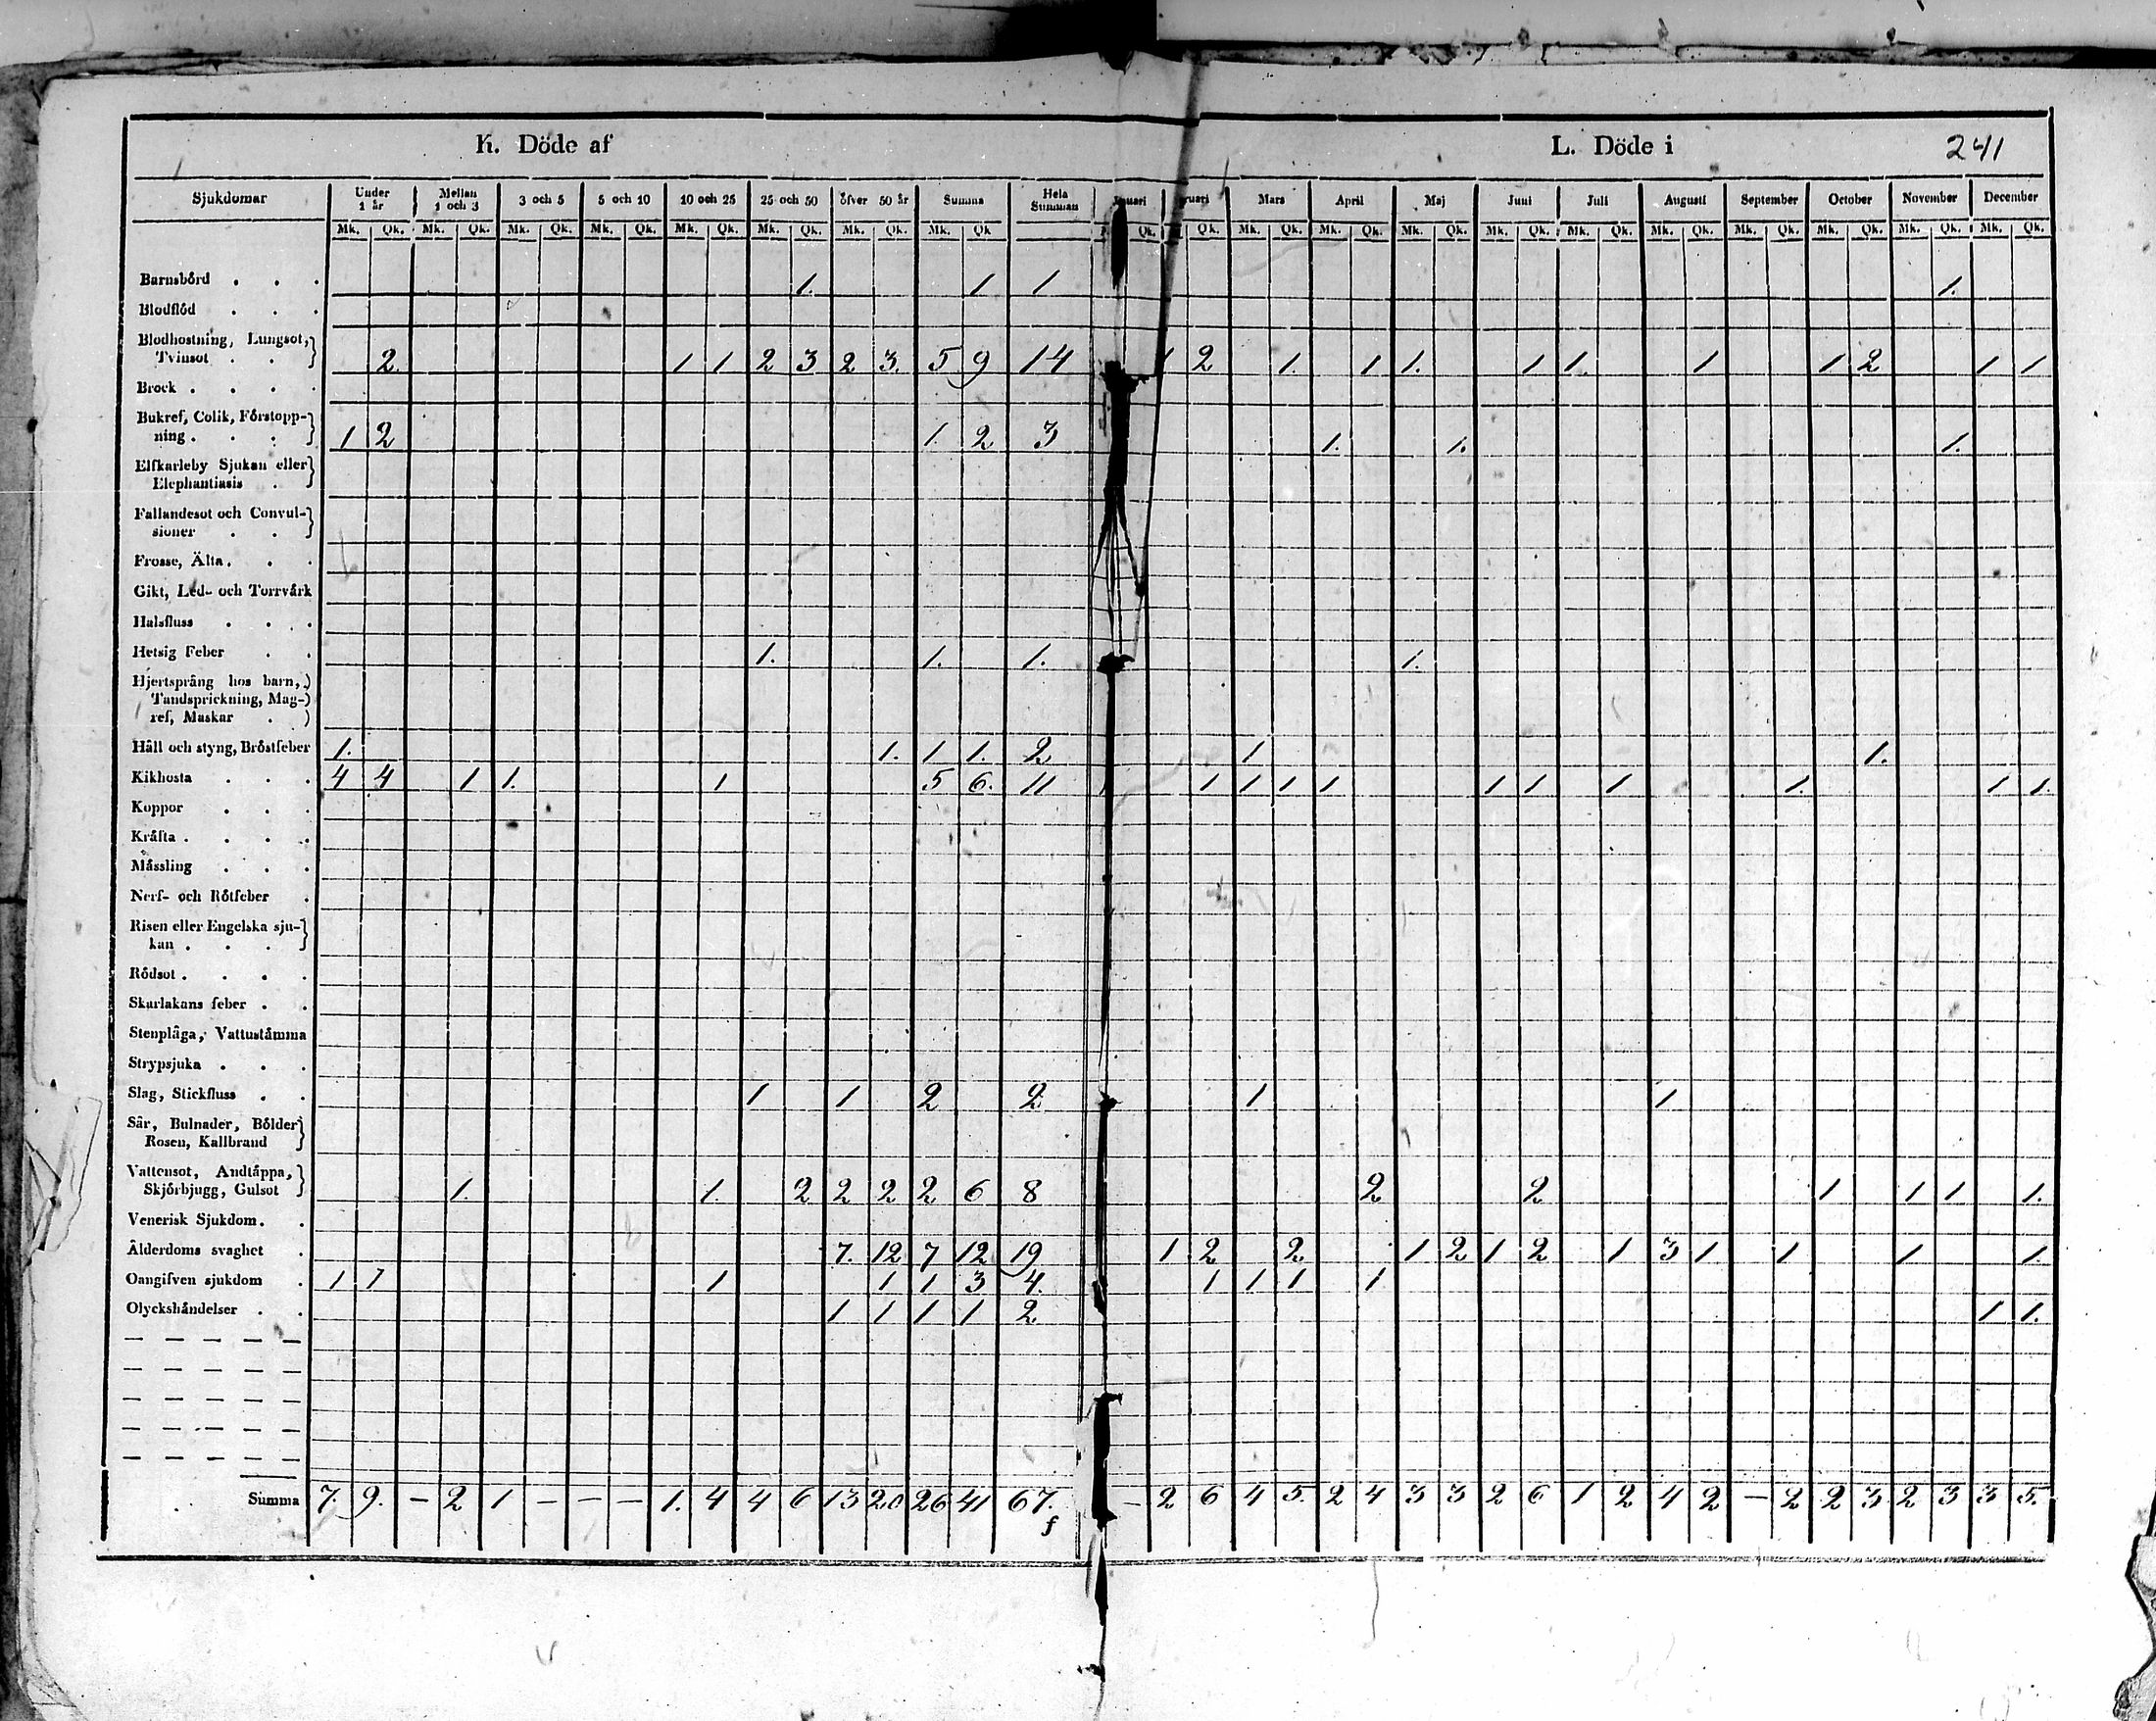 K. Döde af L. Döde i 241
Sjukdomar Under 1 år Mellan 1 och 3 3 och 5 5 och 10 10 och 25 25 och 50 öfver 50 år Summa Hela Summan Mars April Maj Juni Juli Augusti September October November December
Mk. Qk. Mk. Qk. Mk. Qk. Mk. Qk. Mk. Qk. Mk. Qk. Mk. Qk. Mk. Qk Qk. Qk. Mk. Qk. Mk. Qk. Mk. Qk. Mk. Qk. Mk. Qk. Mk. Qk. Mk. Qk. Mk. Qk. Mk. Qk. Mk. Qk.
Barnsbörd . . . 1. 1 1 1.
Blodflöd . . .
Blodhostning, Lungsot,
Tvinsot . . 2. 1 1 2 3 2 3. 5 9 14 1 2 1. 1 1. 1 1. 1 1 2 1 1
Brock . . . .
Bukref, Colik, Förstopp-
ning . . . 1 2 1. 2 3 1. 1. 1.
Elfkarleby Sjukan eller
Elephantiasis .
Fallandesot och Convul-
sioner . .
Frosse, Älta . . .
Gikt, Led- och Torrvärk
Halsfluss . . .
Hetsig Feber . . 1. 1. 1. 1.
Hjertsprång hos barn,
Tandsprickning, Mag-
ref, Maskar .
Håll och styng, Bröstfeber 1. 1. 1 1. 2 1 1.
Kikhosta . . . 4 4 1 1. 1 5 6. 11 1 1 1 1 1 1 1 1. 1 1.
Koppor . . .
Kräfta . . . .
Mässling . . .
Nerf- och Rötfeber .
Risen eller Engelska sju-
kan . . .
Rödsot . . . .
Skarlakans feber . .
Stenplåga, Vattustämma
Strypsjuka . . .
Slag, Stickfluss . . 1 1 2 2 1 1
Sår, Bulnader, Bölder
Rosen, Kallbrand
Vattensot, Andtäppa,
Skjörbjugg, Gulsot 1. 1. 2 2 2 2 6 8 2 2 1 1 1 1.
Venerisk Sjukdom . .
Ålderdoms svaghet . 7. 12 7 12 19 1 2 2 1 2 1 2 1 3 1 1 1 1.
Oangifven sjukdom . 1 1 1 1 1 3 4. 1 1 1 1
Olyckshändelser . . 1 1 1 1 2. 1 1.
Summa 7. 9. - 2 1 - - - 1. 4 4 6 13 20 26 41 67. - 2 6 4 5. 2 4 3 3 2 6 1 2 4 2 - 2 2 3 2 3 3 5.